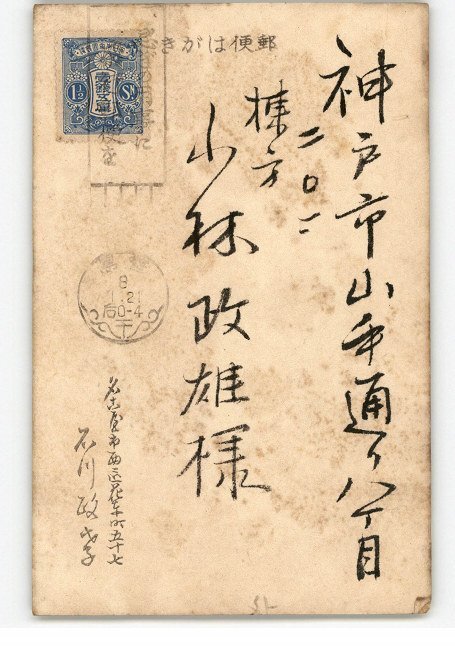 郵便はがき
1½ Sn
神戸市山手通り八丁目
二ノ一
棟方
小林政雄様
名古屋市西区花車町五十七
石川政
8
.21
后0-4